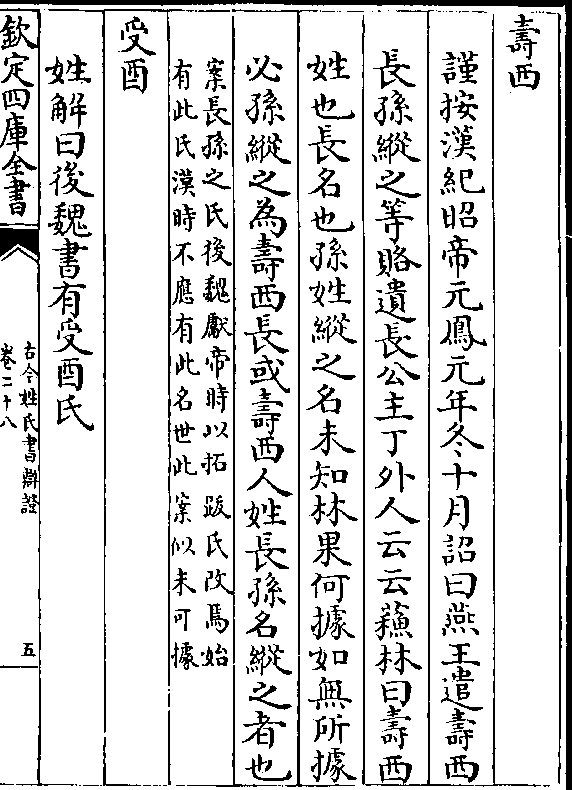 壽西
謹按漢紀昭帝元鳳元年冬十月詔曰燕王遣壽西
長孫縱之等賂遺長公主丁外人云云蘓林曰壽西
姓也長名也孫姓縱之名未知林果何據如無所據
必孫縱之為壽西長或壽西人姓長孫名縱之者也
案長孫之氏後魏獻帝時以拓跋氏改焉始
有此氏漢時不應有此名世此案似未可據
受酉
姓解曰後魏書有受酉氏
欽定四庫全書
古今姓氏書辯證
卷二十八
五